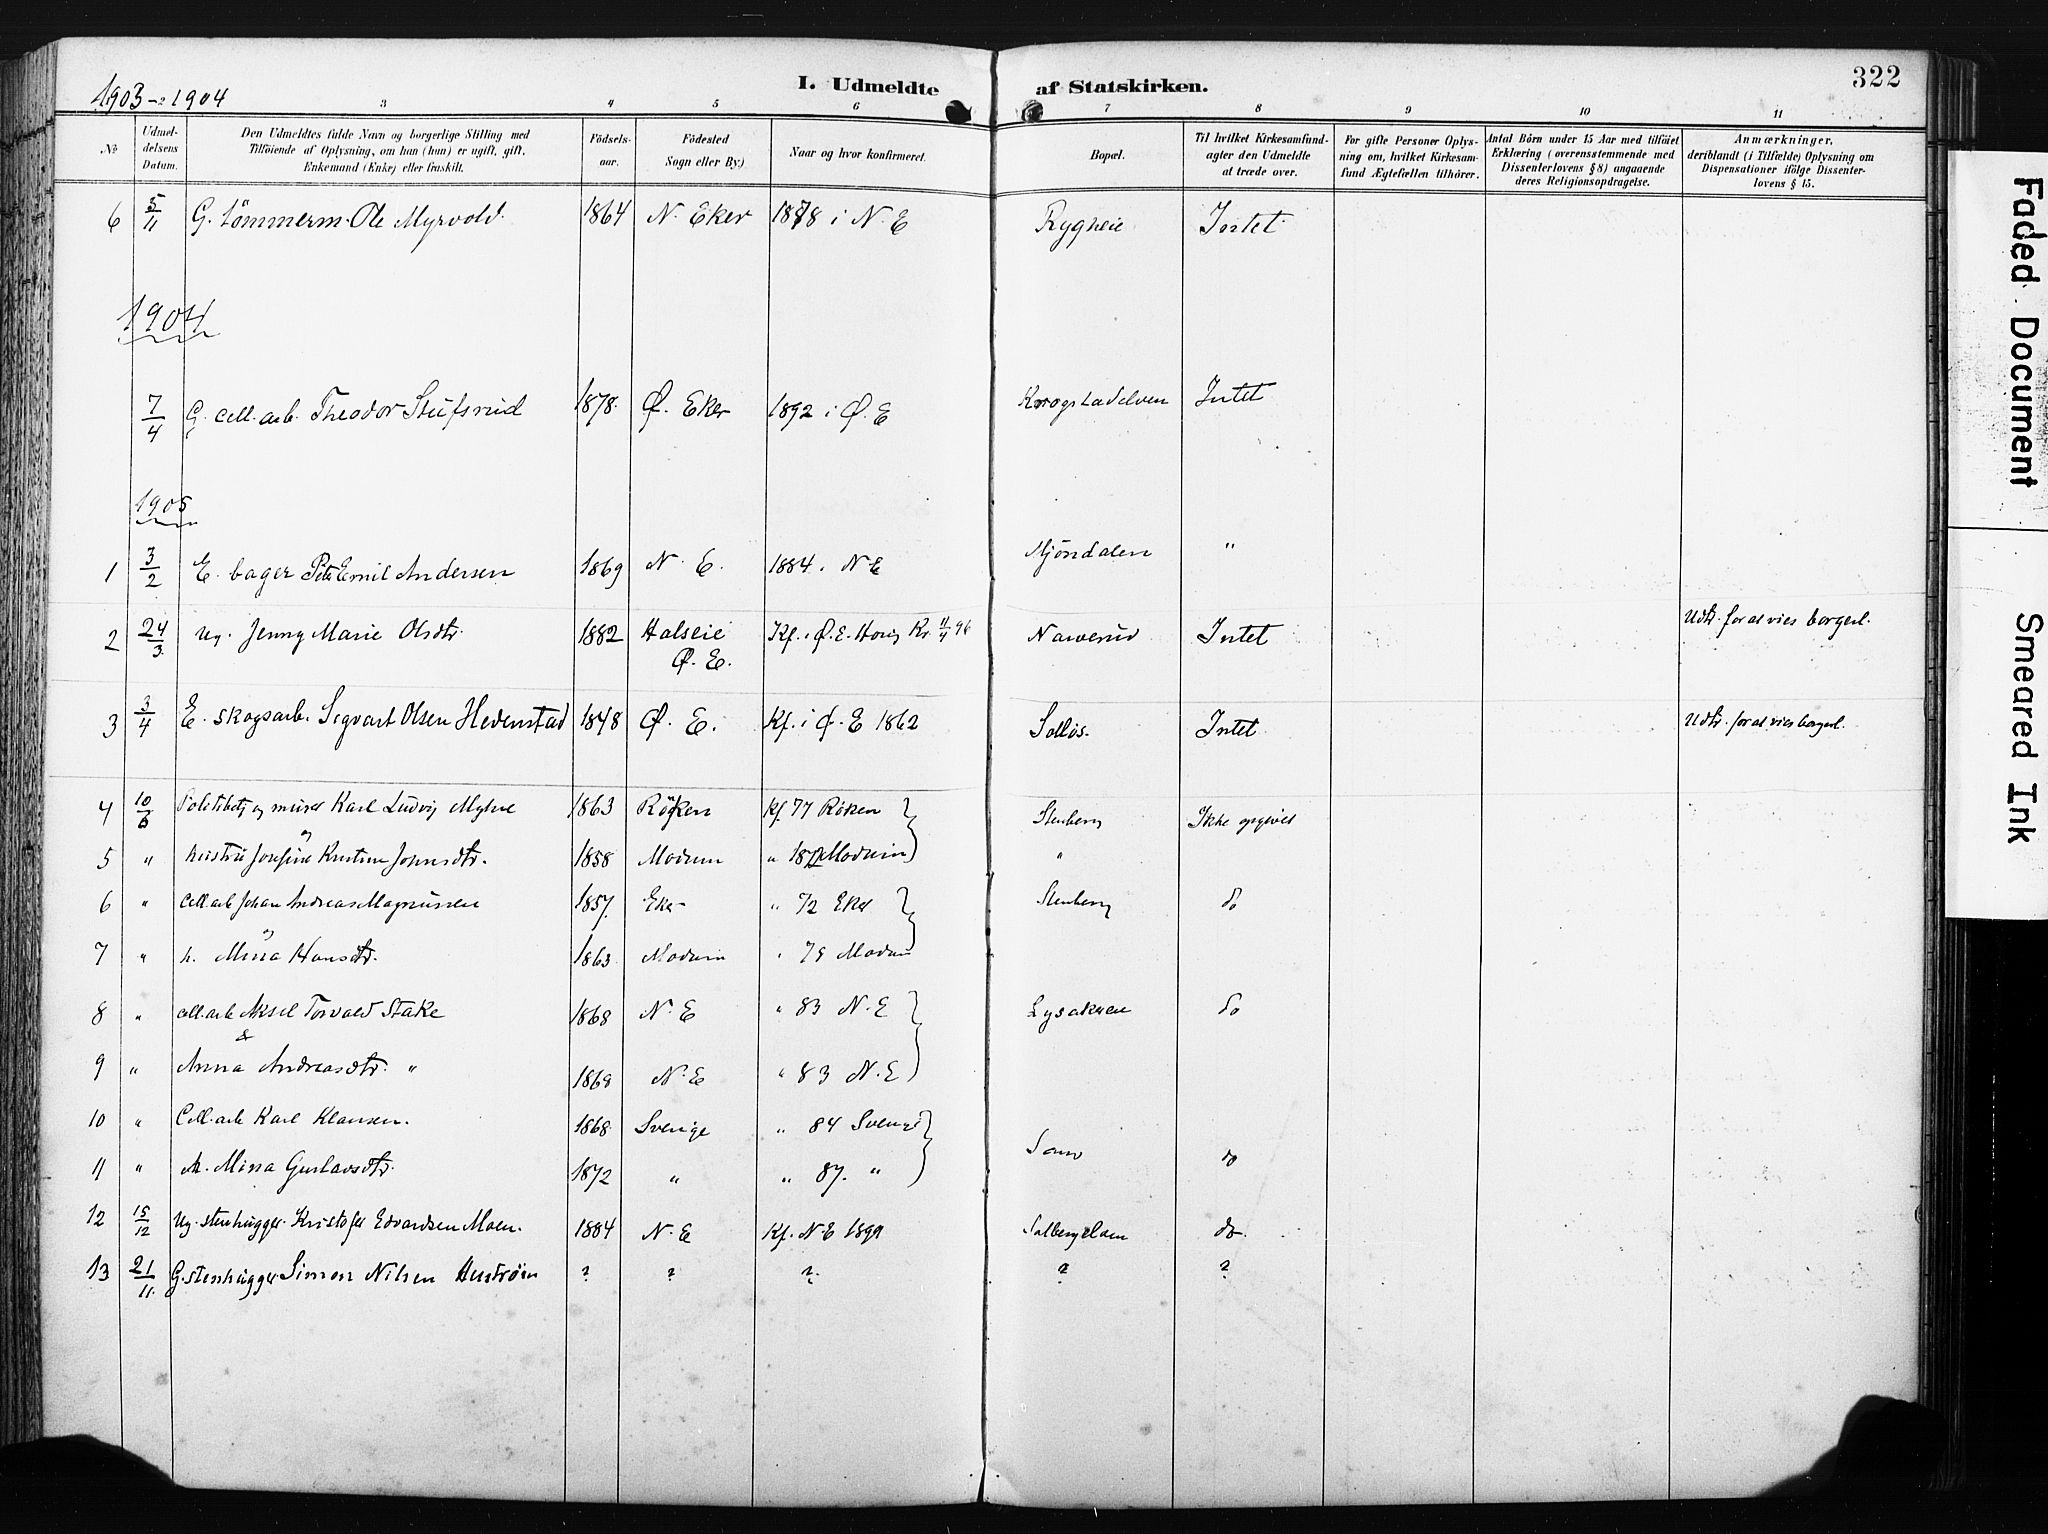 1903-1904
I. Udmeldte af Statskirken.
322
3 4 5 6 7 8 9 10 11
№
Udmel-
delsens
Datum.
Den Udmeldtes fulde Navn og borgerlige Stilling med
Tilföiende af Oplysning, om han (hun) er ugift, gift,
Enkemand (Enke) eller fraskilt.
Födsels-
aar.
Födested
Sogn eller By.)
Naar og hvor konfirmeret.
Bopæl.
Til hvilket Kirkesamfund-
agter den Udmeldte
at træde over.
For gifte Personer Oplys-
ning om, hvilket Kirkesam-
fund Ægtefællen tilhörer.
Antal Börn under 15 Aar med tilföiet
Erklæring (overensstemmende med
Dissenterlovens § 8) angaaende
deres Religionsopdragelse.
Anmærkninger,
deriblandt (i Tilfælde) Oplysning om
Dispensationer ifölge Dissenter-
lovens § 15.
6 5/11 G. tömmerm. Ole Myrvold. 1864 N. Eker 1878 i N. E Rygheie Intet
1904
7/4 G. cell. arb. Theodor Stufsrud 1878. Ø. Eker 1892 i Ø. E Krogstadelven Intet
1905
1 3/2 E. bager Pete Emil Andersen 1869 N. E. 1884. N E Mjöndalen "
2 24/3 ug. Jenny Marie Olsdtr. 1882 Halseie Kf. i Ø. E. Hovig Kr 11/4 96 Narverud Intet Udtr. for at vies borgerl.
Ø. E.
3 3/4 E. skogsarb. Segvart Olsen Hedenstad 1848 Ø. E. Kf. i Ø. E 1862 Solløs. Intet Udtr. for at vies borgerl.
4 10/6 Politibetj og murer Karl Ludvig Myhre 1863 Röyken Kf. 77 Røken Stenberg Ikke opgivet
og
5 " hustru Josefine Kristine Johnsdtr. 1858 Modum " 1872 Modum "
6 " Cell. arb Johan Andreas Magnussen 1857. Eker " 72 Eker Stenberg do
og
7 " h. Mina Hansdtr. 1863 Modum " 79 Modum
8 " cell. arb Aksel Torvald Stake 1868 N. E " 83 N. E Lysakeren do
&
9 " Anna Andreasdtr. " 1869 N. E " 83 N. E
10 " Cell. arb Karl Klausen. 1868 Sverige " 84 Sverige do
11 " h. Mina Gustavsdtr. 1872 " " 87. "
12 15/12 ug. stenhugger. Kristofer Edvardsen Moen. 1884 N. E Kf. N. E 1899 Solbergelven do
13 21/11. G. stenhugger Simon Nilsen Hustrøm ? ? ? ? ?
Faded Document
Smeared Ink